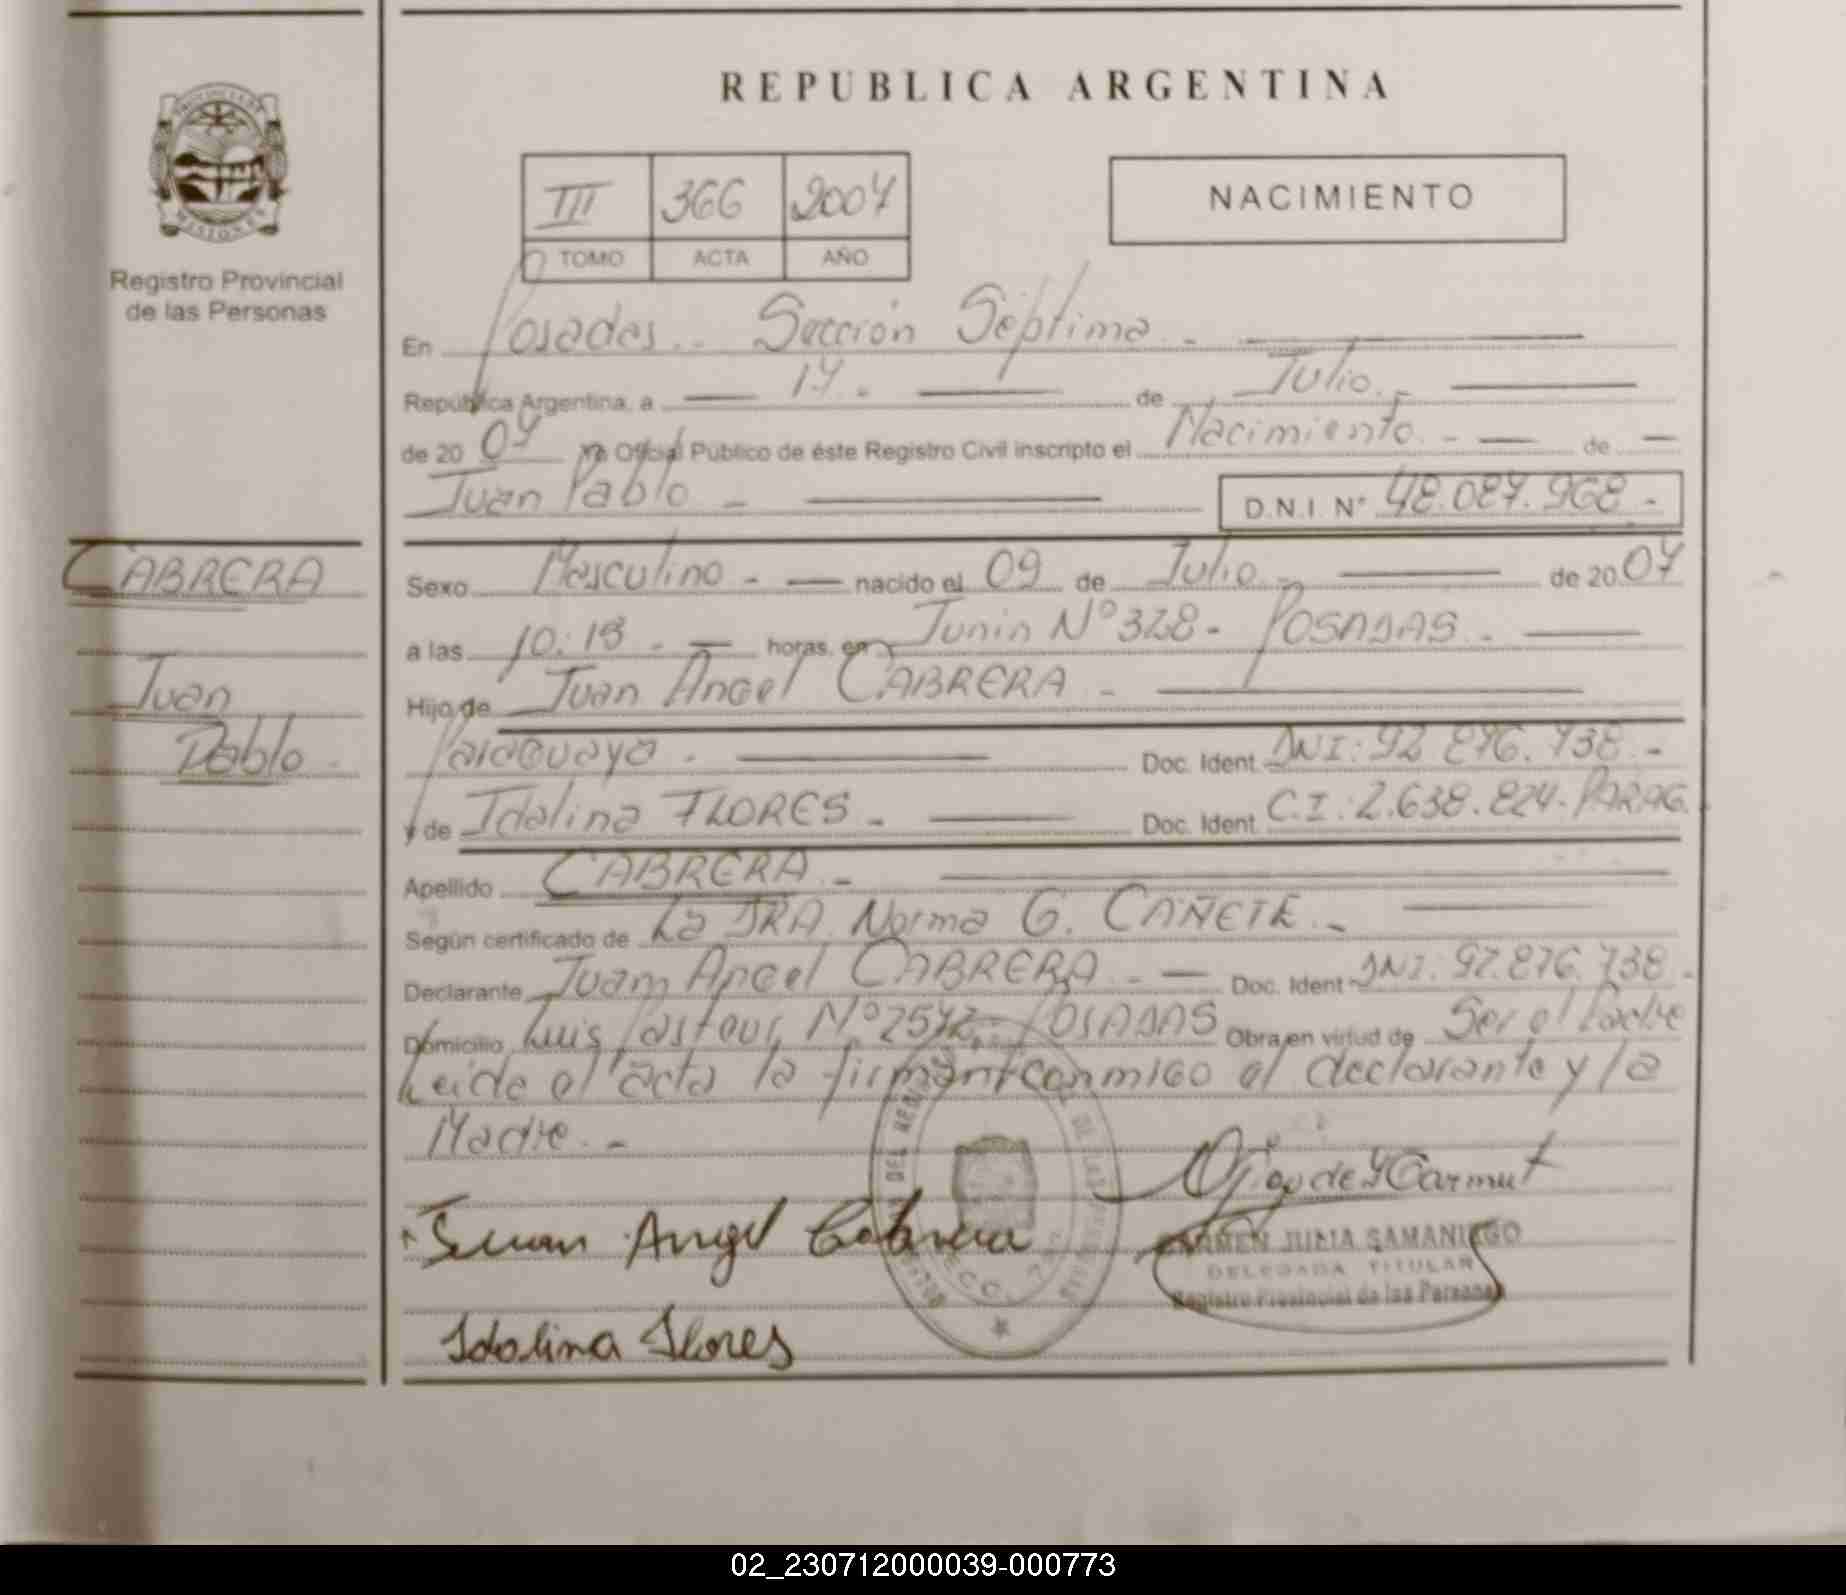 REPUBLICA ARGENTINA
PROVINCIA DE
MISIONES
Registro Provincial
de las Personas
III 366 2007
TOMO ACTA AÑO
NACIMIENTO
En Posadas.. Sección Séptima. -
República Argentina, a 17. - de Julio. -
de 20 07 yo Oficial Público de éste Registro Civil inscripto el Nacimiento. - de
Juan Pablo - D.N.I. Nº 48.087.968 -
CABRERA
Sexo Masculino - nacido el 09 de Julio - de 20 07
a las 10:18 - horas. en Junin Nº 328 - POSADAS. -
Juan
Hijo de Juan Angel CABRERA -
Pablo
Paraguaya - Doc. Ident. DNI: 92 876. 738 -
y de Idalina FLORES - Doc. Ident. C.I.: 2.638.824. PARAG.
Apellido CABRERA. -
Según certificado de La DRA. Norma G. CAÑETE. -
Declarante Juan Angel CABRERA. - Doc. Ident DNI: 92.876.738 -
Domicilio Luis Pasteur Nº 2542 - POSADAS Obra en virtud de Ser el Padre
Leida el acta la firmant conmigo el declarante y la
Madre. -
Juan Angel Cabrera
CARMEN JULIA SAMANIEGO
DELEGADA TITULAR
Registro Provincial de las Personas
Idalina Flores
02_230712000039-000773